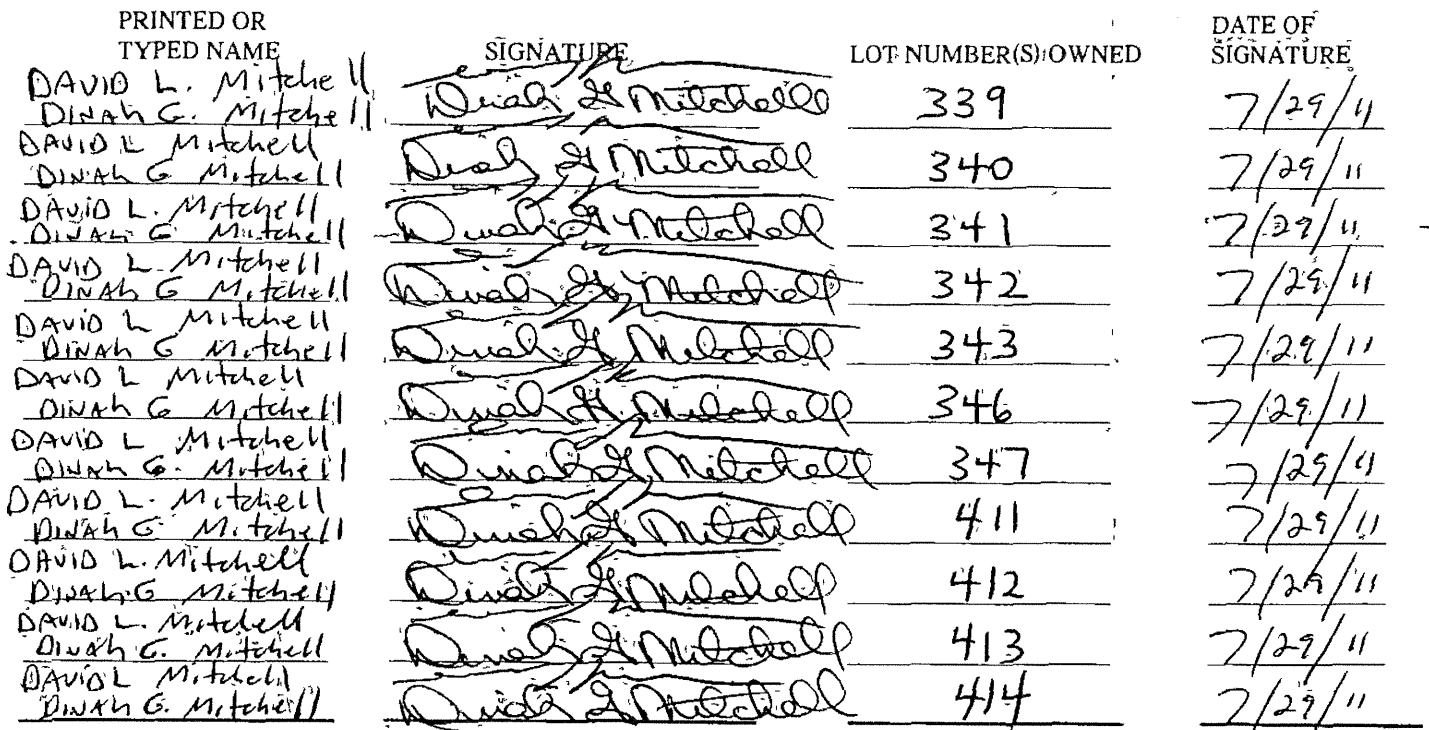 PRINTED OR
TYPED NAME SIGNATURE LOT NUMBER(S) OWNED DATE OF SIGNATURE
DAVID L. Mitchell
DINAH G. Mitchell Dinah G Mitchell 339 7/29/11
DAVID L Mitchell
DINAH G Mitchell Dinah G Mitchell 340 7/29/11
DAVID L. Mitchell
DINAH G Mitchell Dinah G Mitchell 341 7/29/11
DAVID L. Mitchell
DINAH G Mitchell Dinah G Mitchell 342 7/29/11
DAVID L Mitchell
DINAH G Mitchell Dinah G Mitchell 343 7/29/11
DAVID L Mitchell
DINAH G Mitchell Dinah G Mitchell 346 7/29/11
DAVID L Mitchell
DINAH G. Mitchell Dinah G Mitchell 347 7/29/11
DAVID L. Mitchell
DINAH G Mitchell Dinah G Mitchell 411 7/29/11
DAVID L. Mitchell
DINAH G Mitchell Dinah G Mitchell 412 7/29/11
DAVID L. Mitchell
DINAH G. Mitchell Dinah G Mitchell 413 7/29/11
DAVID L Mitchell
DINAH G. Mitchell Dinah G Mitchell 414 7/29/11